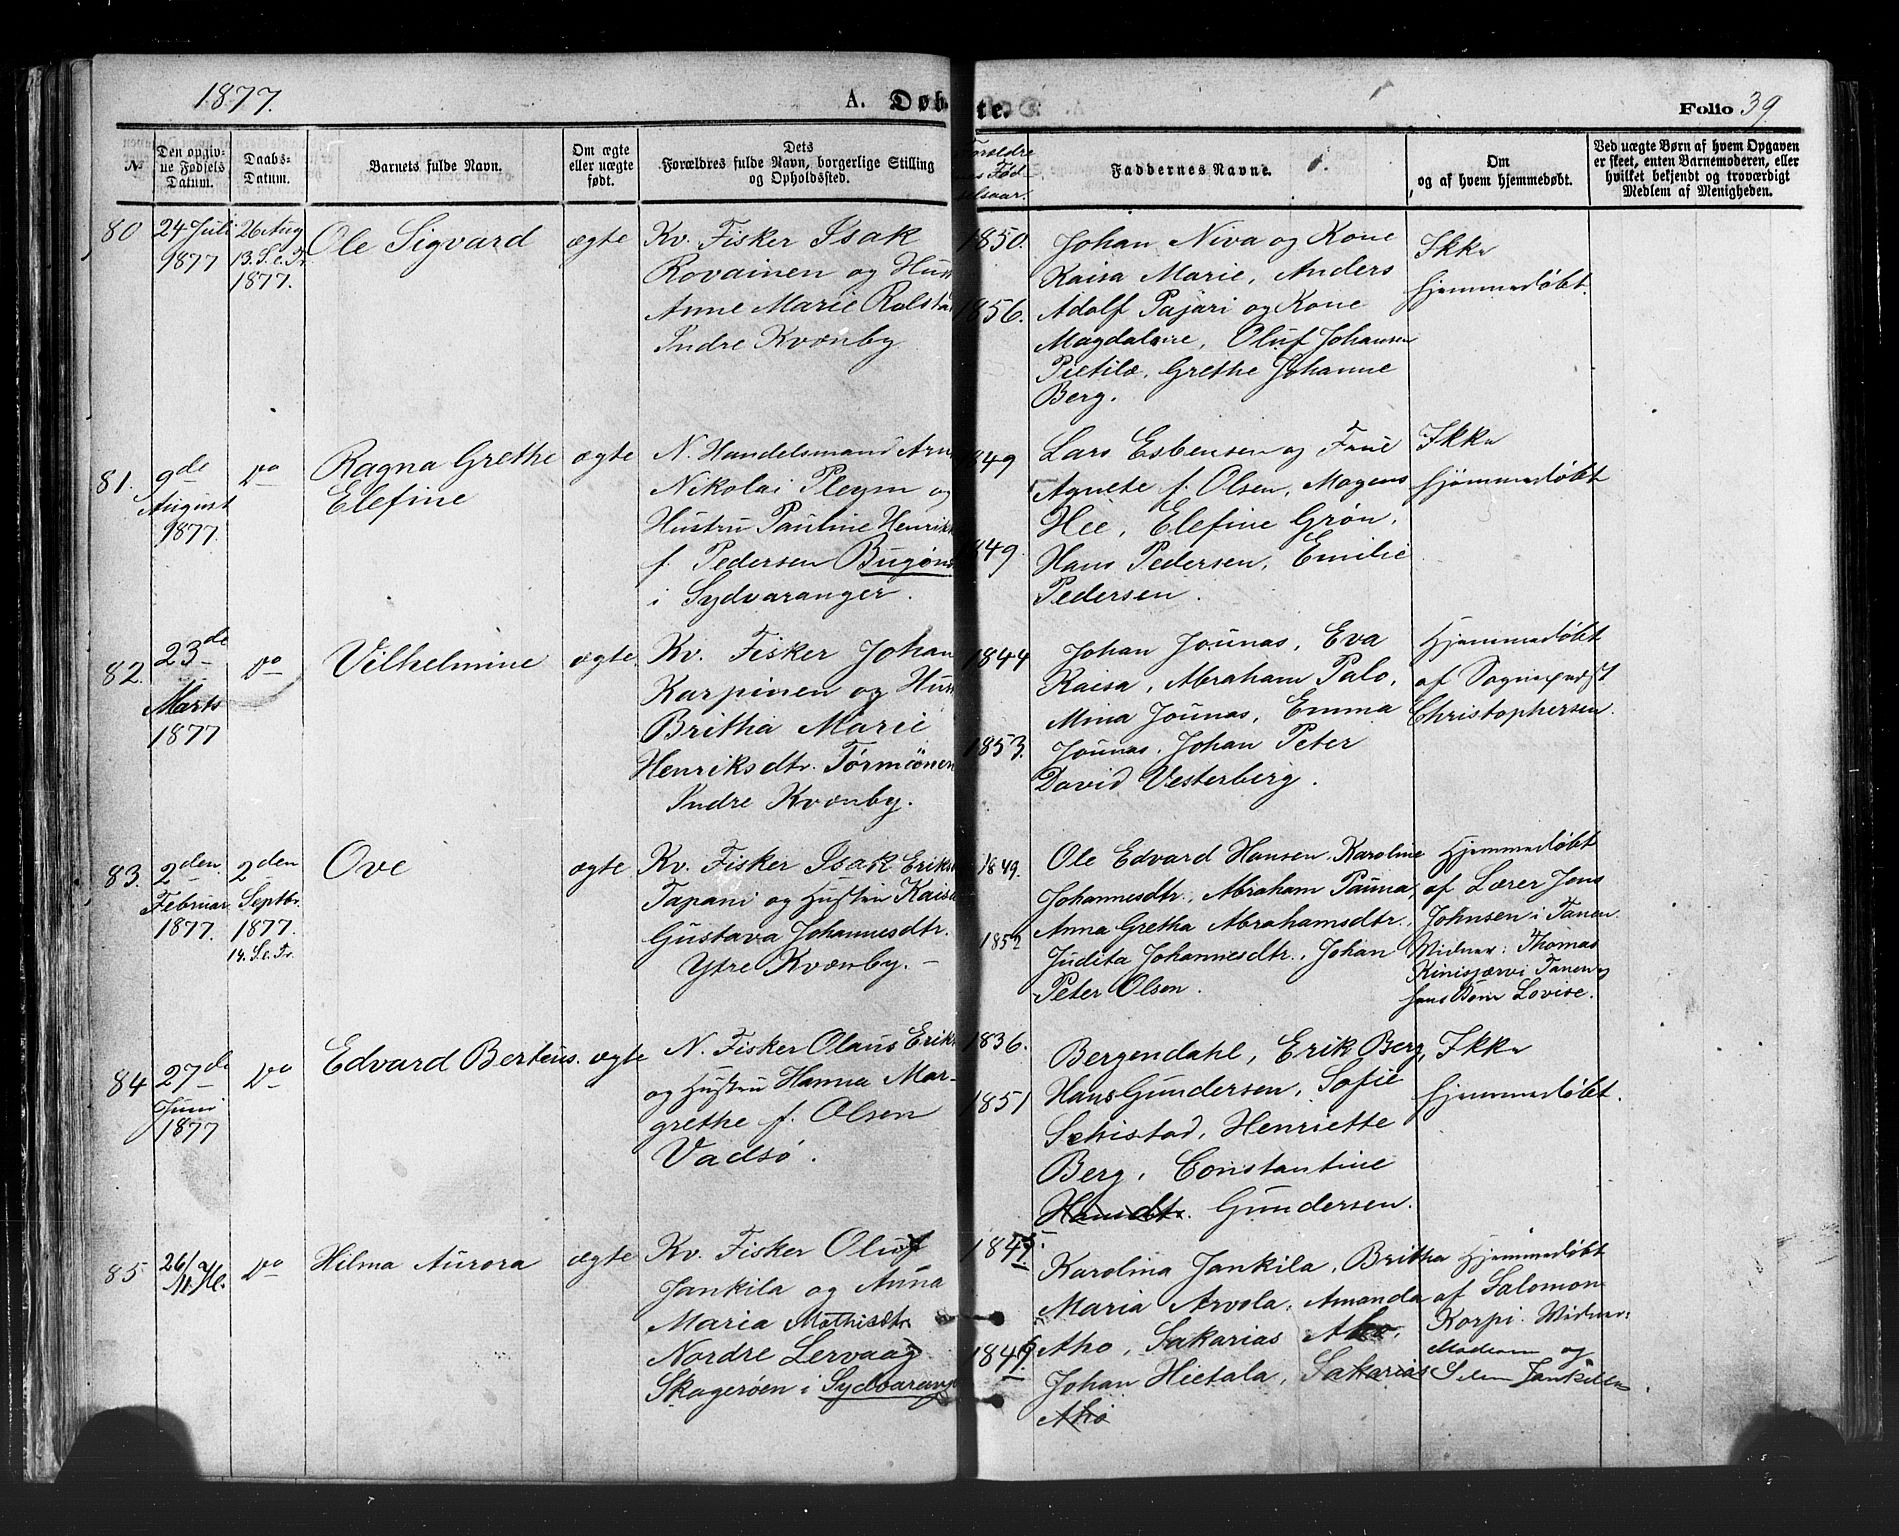 1877.
A. Døb te.
Folio 39
№
Den opgiv-
ne Fødsels
Datum.
Daabs-
Datum.
Barnets fulde Navn.
Om ægte
eller uægte
født.
Dets
Forældres fulde Navn, borgerlige Stilling
og Opholdssted.
Faddernes Navne.
Om
og af hvem hjemmedøbt.
Ved uægte Børn af hvem Opgaven
er skeet, enten Barnemoderen, eller
hvilket bekjendt og troværdigt
Medlem af Menigheden.
80
24 Juli
1877
26 Aug
13. S. e. Tr.
1877.
Ole Sigvard
ægte
Kv. Fisker Isak
Rovainen og Hust
Anne Marie Rolsta
Indre Kvænby
1850.
1856.
Johan Niva og Kone
Kaisa Marie, Anders
Adolf Pajari og Kone
Magdalene, Oluf Johansen
Pietilæ, Grethe Johanne
Berg.
Ikke
hjemmedøbt.
81.
9de
August
1877.
Do
Ragna Grethe
Elefine
ægte
N. Handelsmand Arn
Nikolai Pleym og
Hustru Pauline Henrikt
f. Pedersen Bugøns
i Sydvaranger.
1849
1849.
Lars Esbensen og Frue
Agnete f. Olsen, Mogens
Hie, Elefine Grøn,
Hans Pedersen, Emilie
Pedersen.
Ikke
hjemmedøbt
82.
23de
Marts
1877
Do
Vilhelmine
ægte
Kv. Fisker Johan
Karpinen og Hust
Britha Marie
Henriksdtr. Törmäönen
Indre Kvænby.
1844
1853.
Johan Jounas, Eva
Kaisa, Abraham Palo,
Mina Jounas, Emma
Jounas, Johan Peter
David Vesterberg.
Hjemmedøbt
af Sogneprest
Christophersen.
83.
2den
Februar
1877.
2den
Septbr.
1877.
14. S. e. Tr.
Ove
ægte
Kv. Fisker Isak Eriks
Tapani og Hustru Kaisa
Gustava Johannesdtr.
Ytre Kvænby.
1849.
1852
Ole Edvard Hansen, Karoline
Johannesdtr., Abraham Pauna,
Anna Gretha Abrahamsdtr.,
Judita Johannesdtr., Johan
Peter Olsen.
Hjemmedøbt
af Lærer Jens
Johnsen i Tanen.
Vidner: Thomas
Kinisjærvi Tanen og
hans Kone Lovise.
84
27de
Juni
1877
Do
Edvard Berteus.
ægte
N. Fisker Olaus Erik
og Hustru Hanna Mar-
grethe f. Olsen
Vadsø.
1836.
1851
Bergendahl, Erik Berg,
Hans Gundersen, Sofie
Schistad, Henriette
Berg, Constantine
Hansdtr. Gundersen.
Ikke
hjemmedøbt.
85
26/
Do
Hilma Aurora
ægte
Kv. Fisker Oluf
Jankila og Anna
Maria Mathisdtr
Nordre Lervaag
Skogerøen i Sydvarang
Karolina Jankila, Britha
Maria Arvola, Amanda
Aho, Sakarias Aho,
Johan Hietala, Sakarias
Aho
Hjemmedøbt
af Salomon
Korpi. Vidner:
Moderen og
Selma Jankilla.